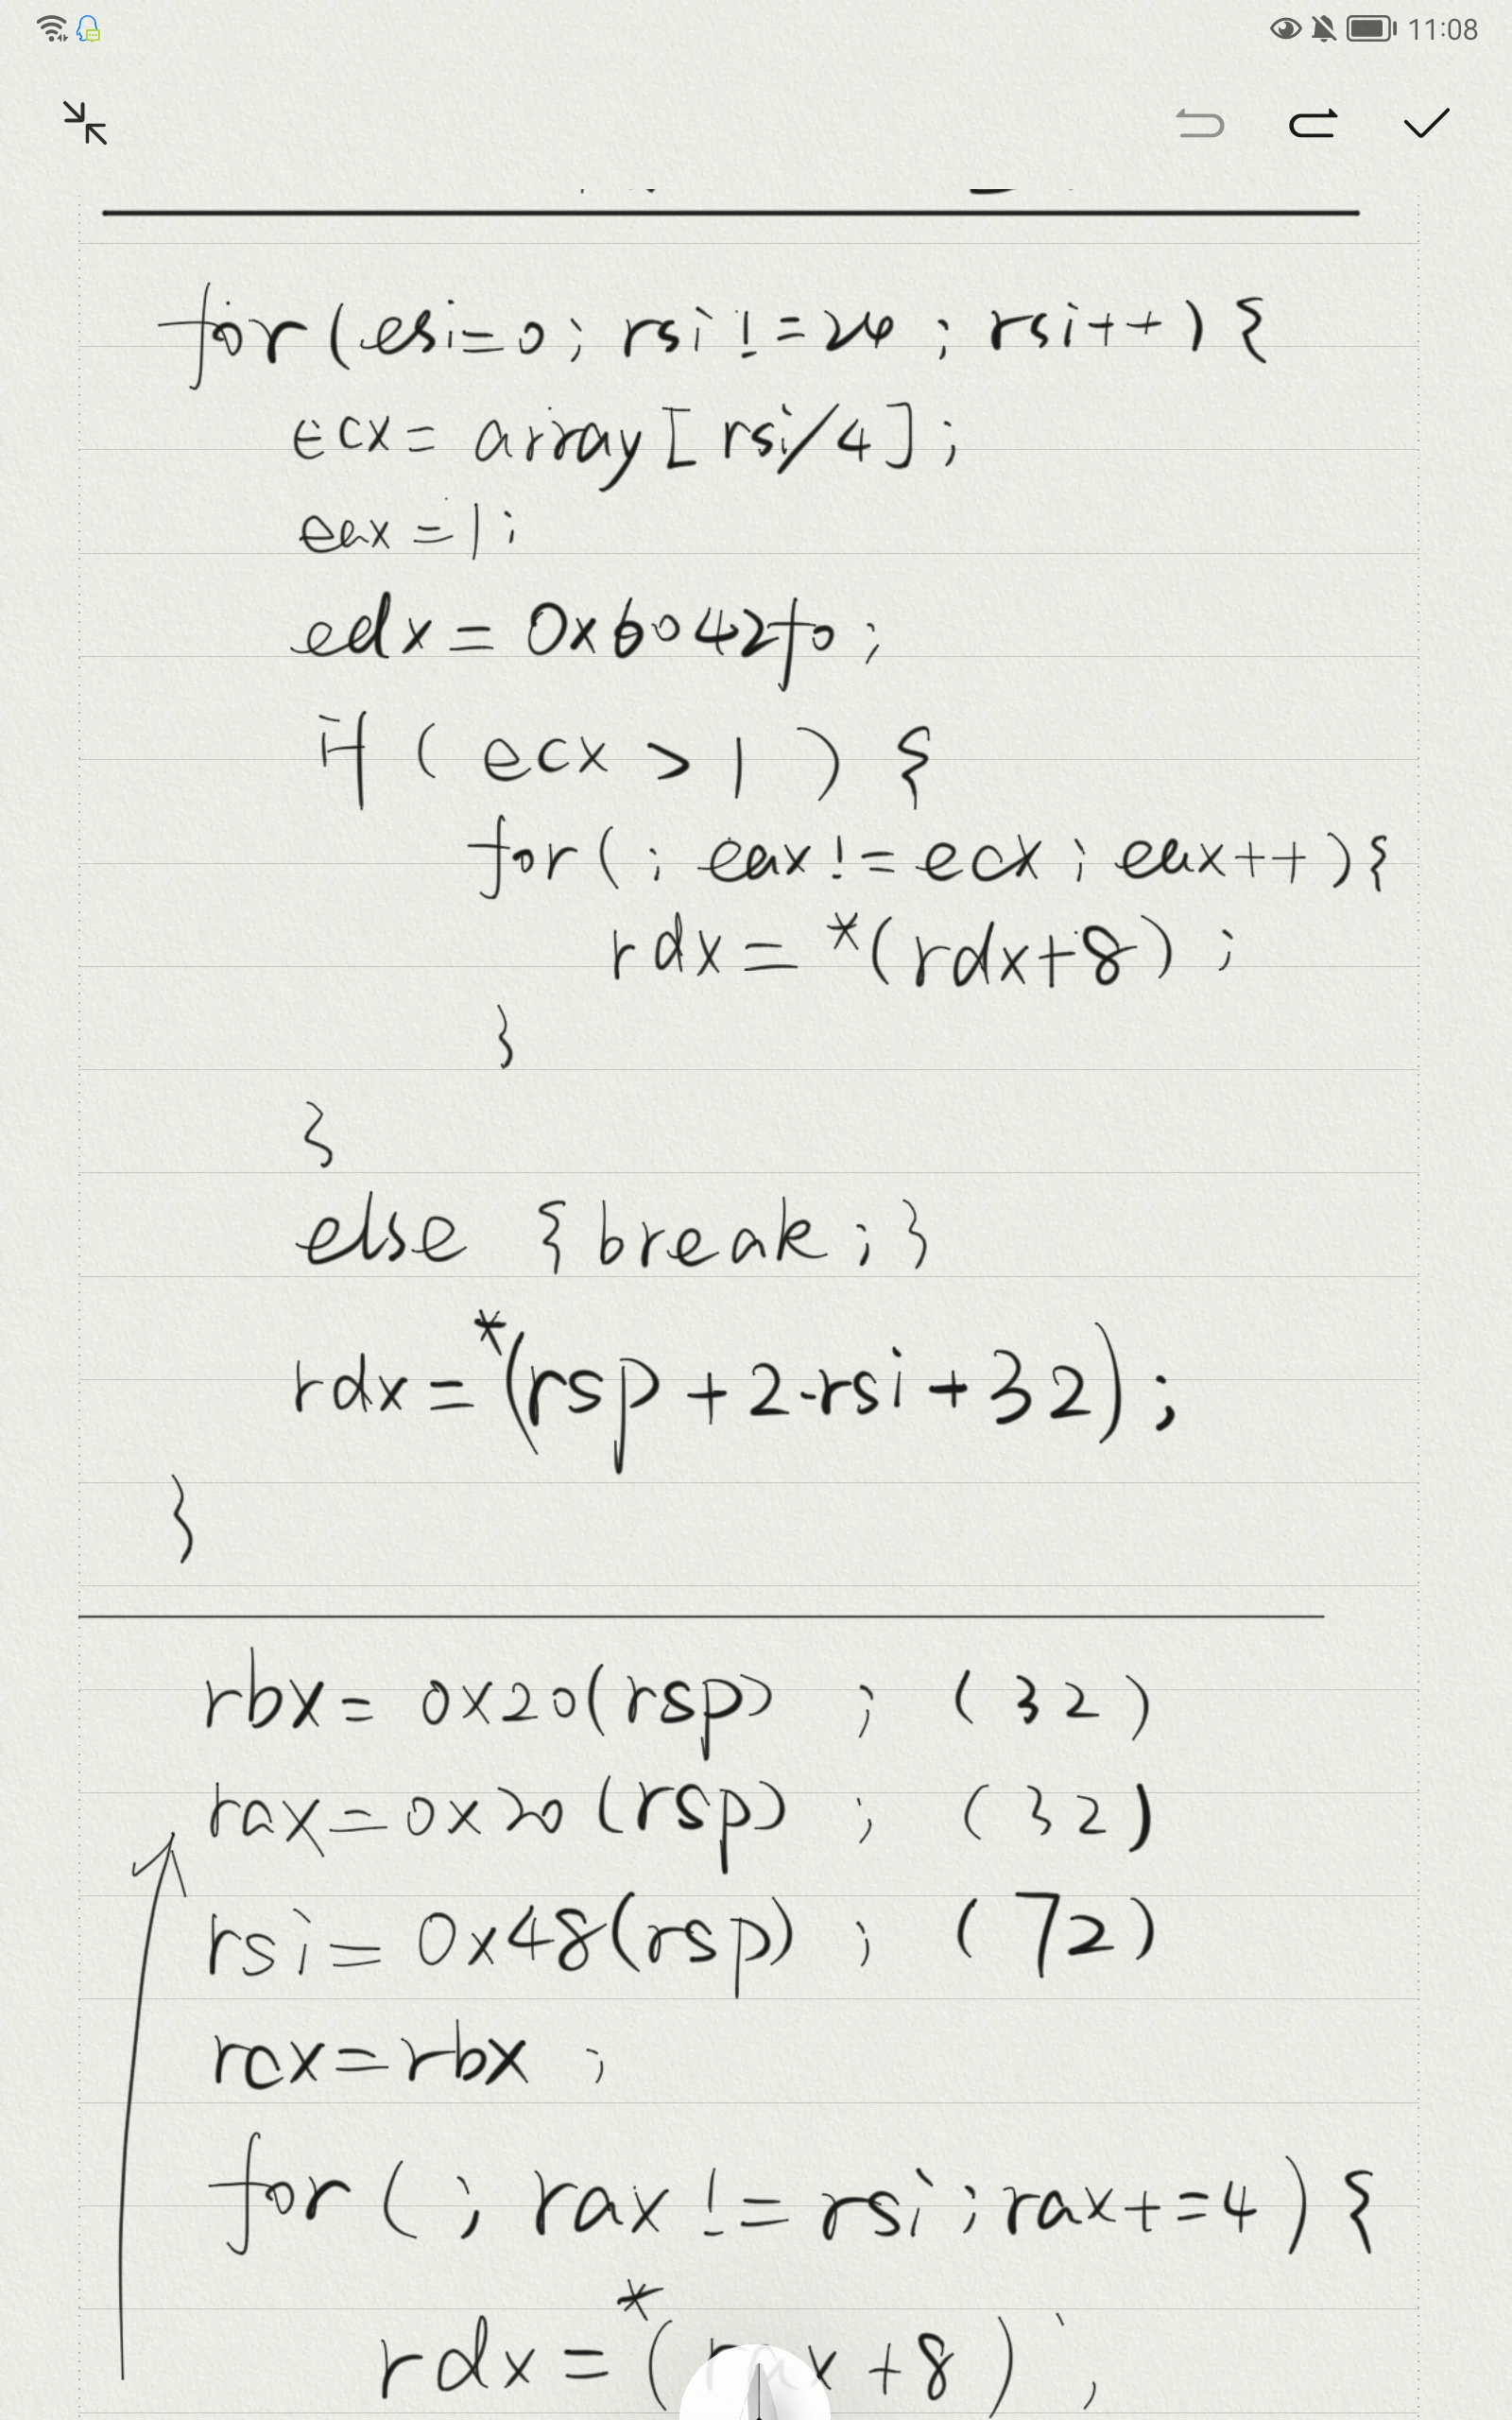 11:08
for(esi=0; rsi!=24; rsi++){
ecx= array[rsi/4];
eax=1;
edx = 0x6042f0;
if ( ecx > 1 ) {
for(; eax!=ecx; eax++){
rdx = *(rdx+8) ;
}
}
else {break;}
rdx = *(rsp + 2·rsi + 32);
}
rbx= 0x20(rsp) ; (32)
rax=0x20(rsp) ; (32)
rsi=0x48(rsp) ; (72)
rcx=rbx ;
for( ; rax != rsi ; rax+=4) {
rdx = *( +8) ;